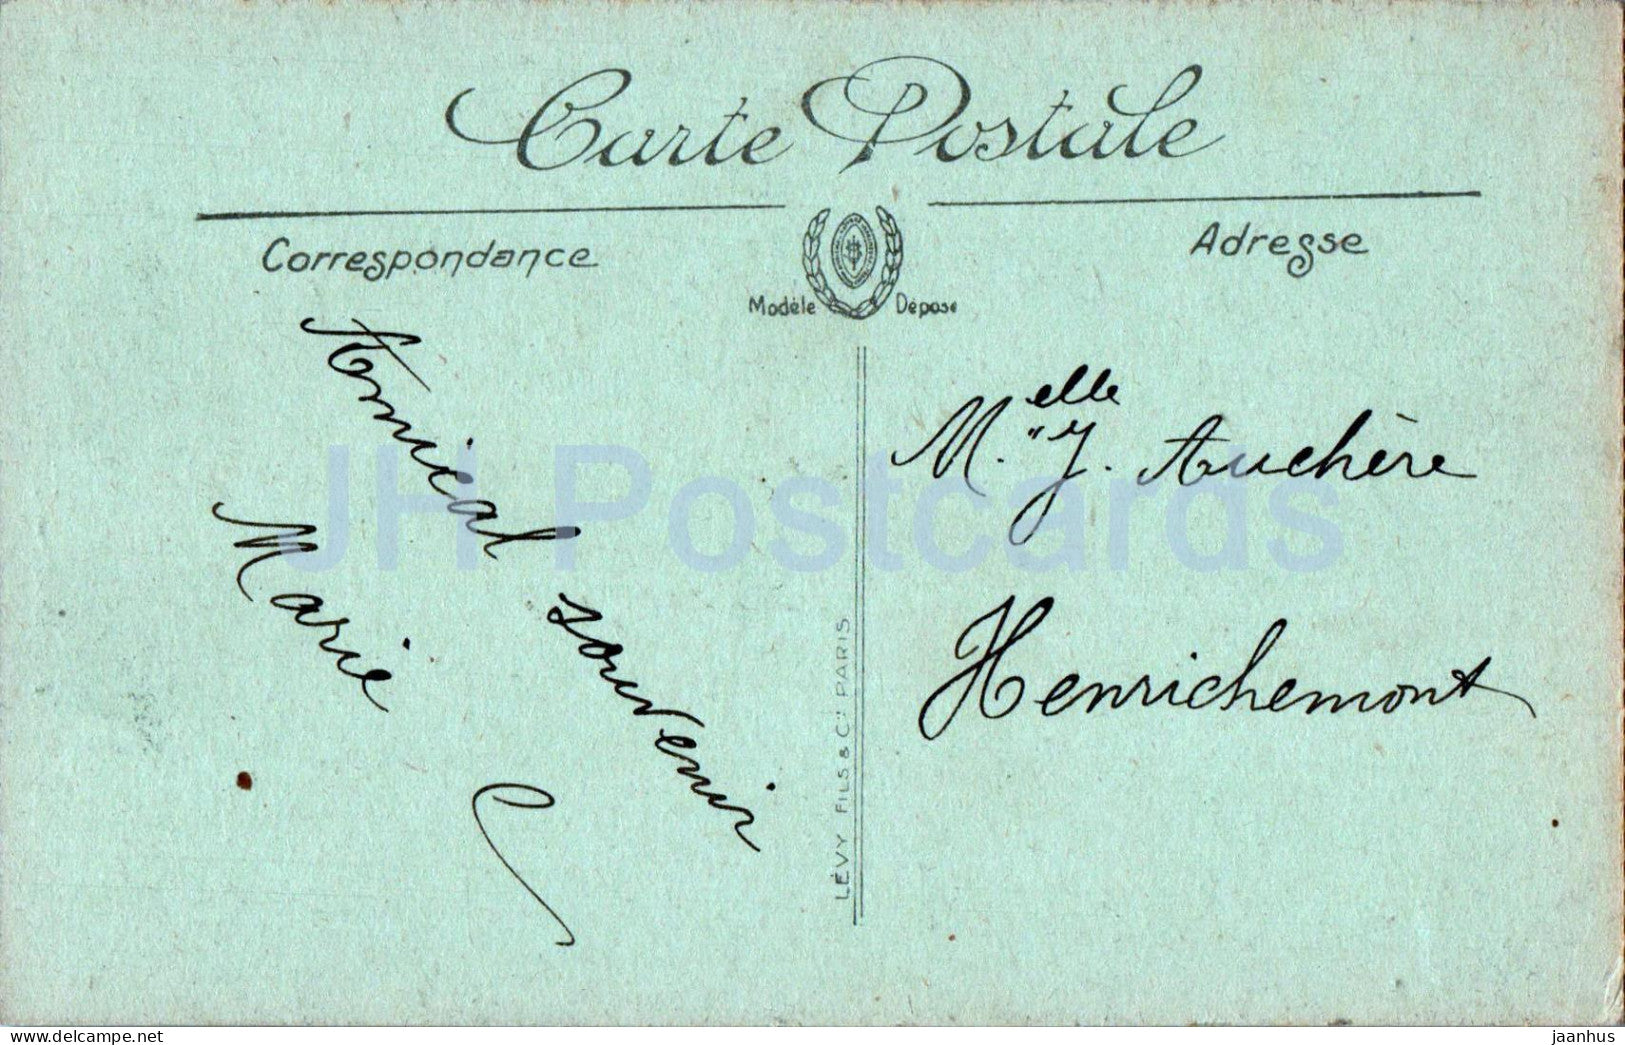 Carte Postale
Correspondance
Adresse
Modèle Déposé
Amical souvenir
Marie
M.elle J. Auchère
Henrichemont
LÉVY FILS & Cie PARIS
JH Postcards
jaanhus